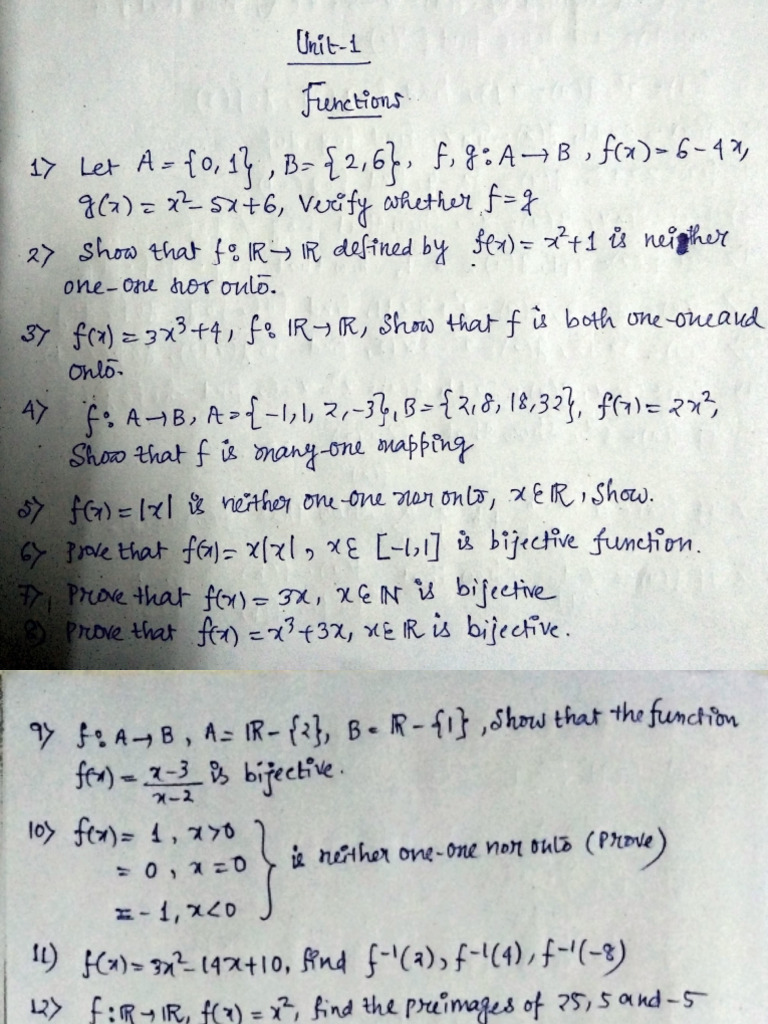 Unit-1
Functions
1) Let A = {0,1}, B = {2,6}, f, g : A → B, f(x) = 6-4x,
g(x) = x²-5x+6, Verify whether f=g
2) Show that f: ℝ → ℝ defined by f(x) = x²+1 is neither
one-one nor onto.
3) f(x) = 3x³+4, f: ℝ → ℝ, Show that f is both one-one and
onto.
4) f: A → B, A = {-1, 1, 2, -3}, B = {2, 8, 18, 32}, f(x) = 2x²,
Show that f is many-one mapping
5) f(x) = |x| is neither one-one nor onto, x ∈ ℝ, Show.
6) Prove that f(x) = x|x|, x ∈ [-1,1] is bijective function.
7) Prove that f(x) = 3x, x ∈ ℕ is bijective
8) Prove that f(x) = x³+3x, x ∈ ℝ is bijective.
9) f: A → B, A = ℝ-{2}, B = ℝ-{1}, Show that the function
f(x) = x-3/x-2 is bijective.
10) f(x) = 1, x>0
= 0, x=0 } is neither one-one nor onto (Prove)
= -1, x<0
11) f(x) = 3x²-14x+10, find f⁻¹(2), f⁻¹(4), f⁻¹(-8)
12) f: ℝ → ℝ, f(x) = x², find the preimages of 25, 5 and -5